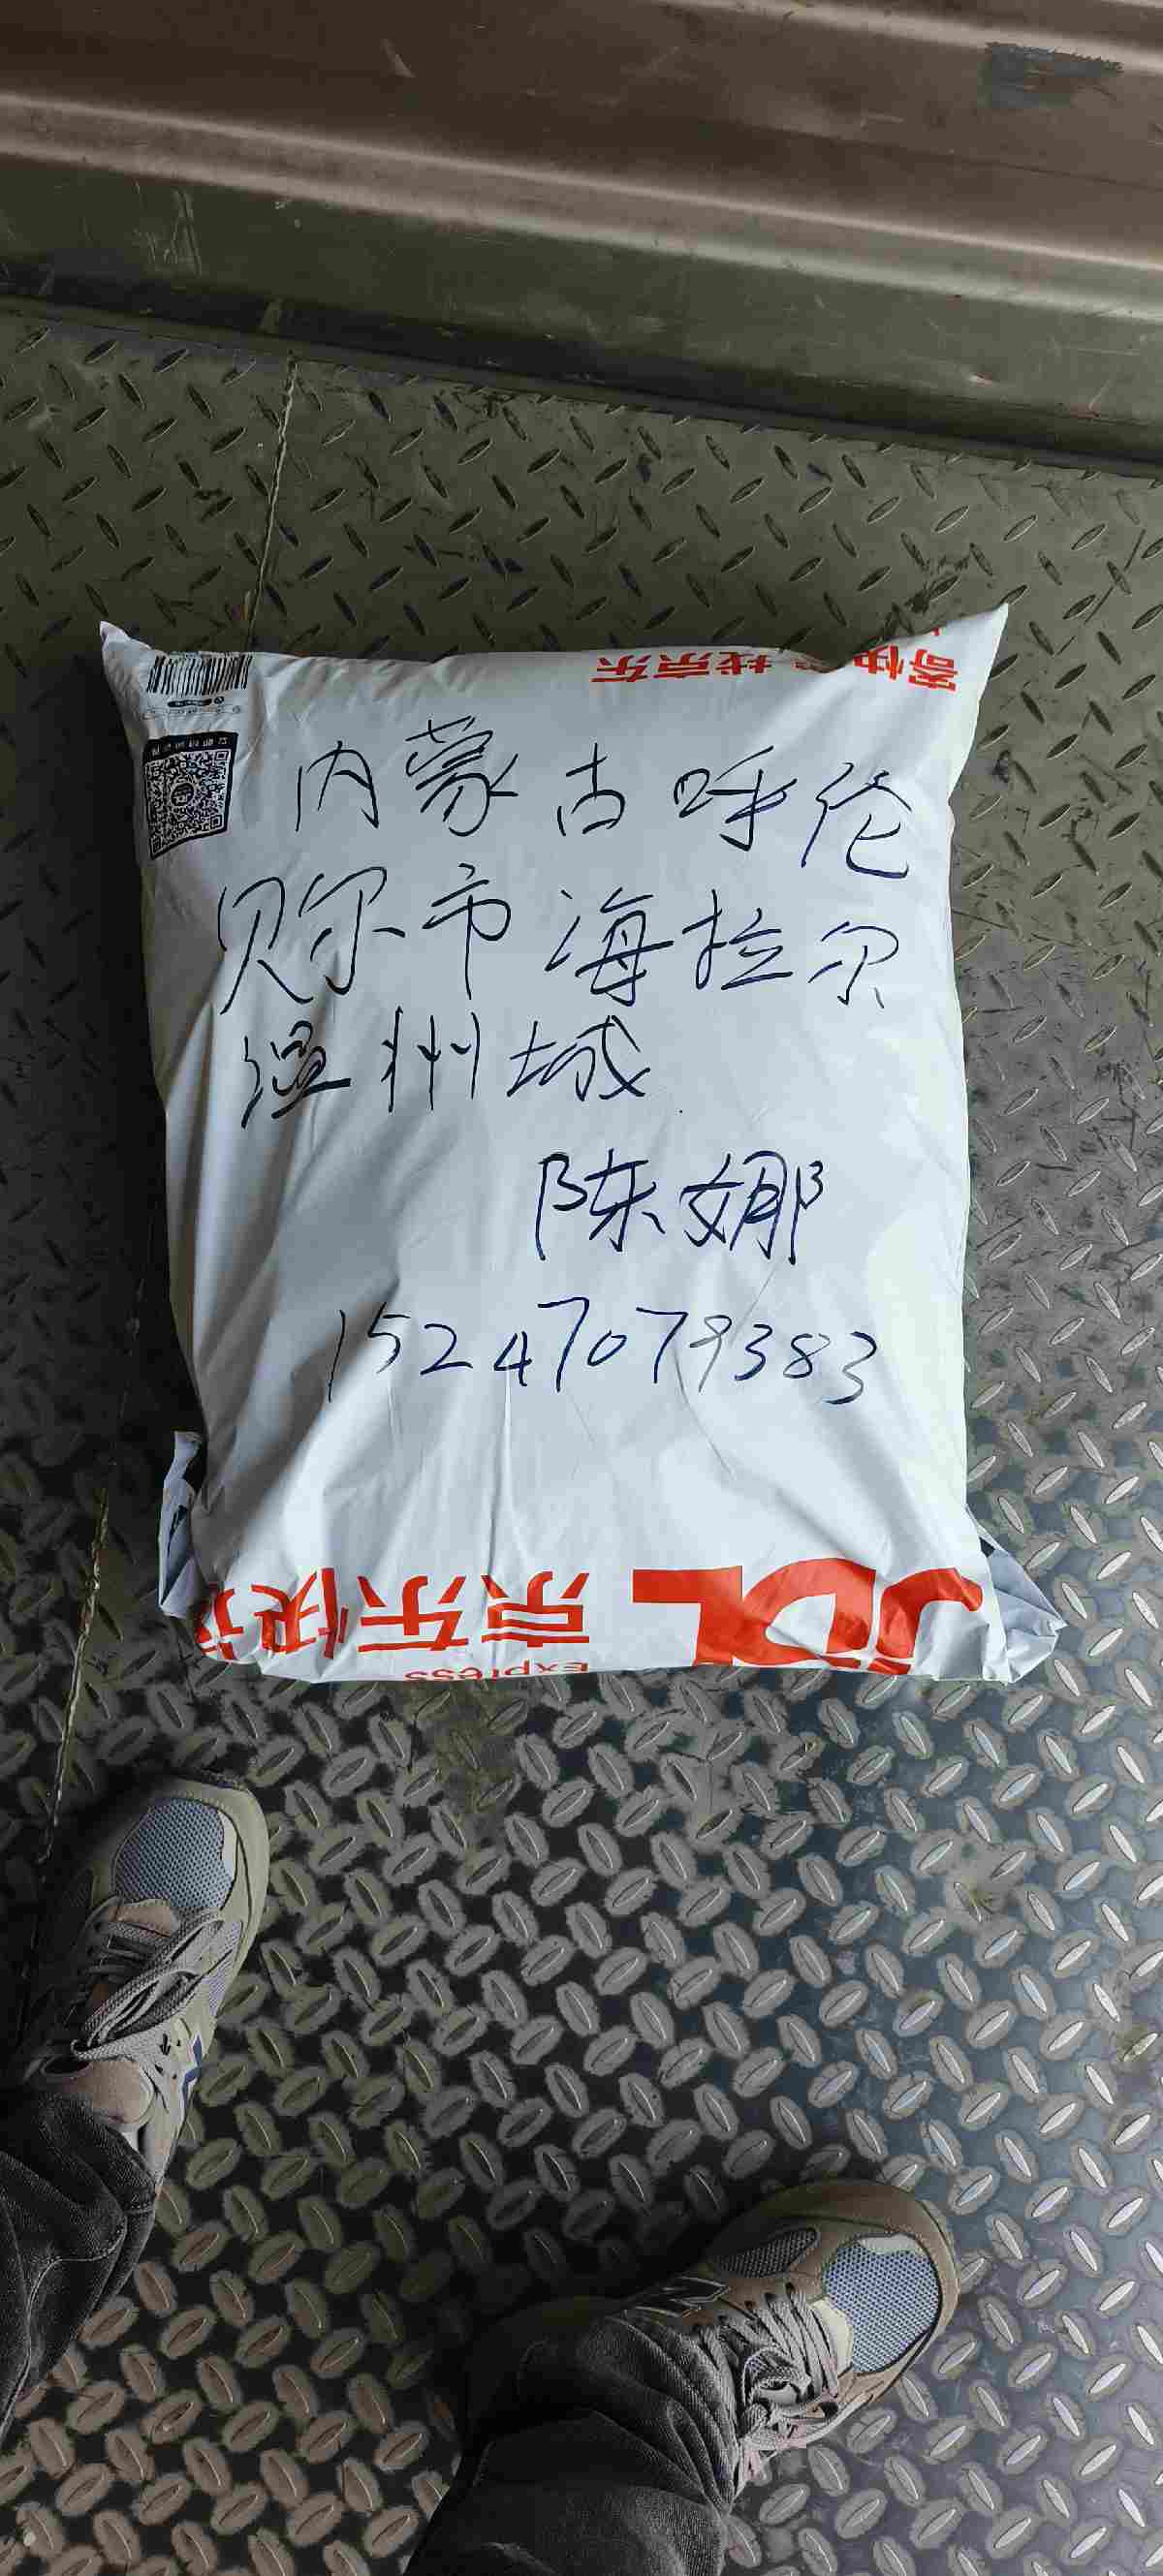 寄快 找京东
内蒙古呼伦
贝尔市海拉尔
温州城
陈娜
15247079383
JDL
京东快
Express